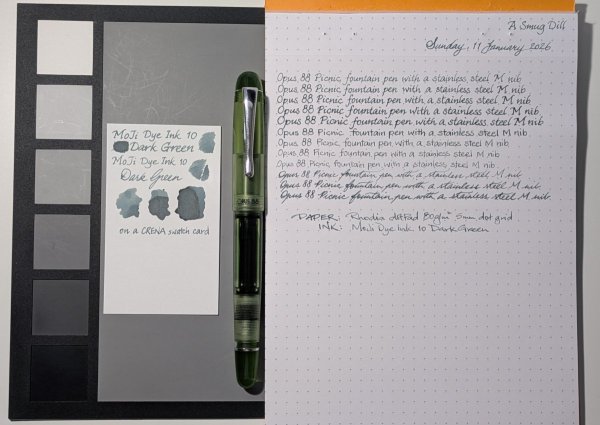 MoJi Dye Ink 10
Dark Green
MoJi Dye Ink 10
Dark Green
on a CRENA swatch card
OPUS 88
A Smug Dill
Sunday, 11 January 2026
Opus 88 Picnic fountain pen with a stainless steel M nib
Opus 88 Picnic fountain pen with a stainless steel M nib.
Opus 88 Picnic fountain pen with a stainless steel M nib.
Opus 88 Picnic fountain pen with a stainless steel M nib.
Opus 88 Picnic fountain pen with a stainless steel M nib.
Opus 88 Picnic fountain pen with a stainless steel M nib.
Opus 88 Picnic fountain pen with a stainless steel M nib.
Opus 88 Picnic fountain pen with a stainless steel M nib
Opus 88 Picnic fountain pen with a stainless steel M nib.
Opus 88 Picnic fountain pen with a stainless steel M nib.
Opus 88 Picnic fountain pen with a stainless steel M nib.
Opus 88 Picnic fountain pen with a stainless steel M nib.
PAPER: Rhodia dotPad 80g/m² 5mm dot grid
INK: MoJi Dye Ink 10 Dark Green